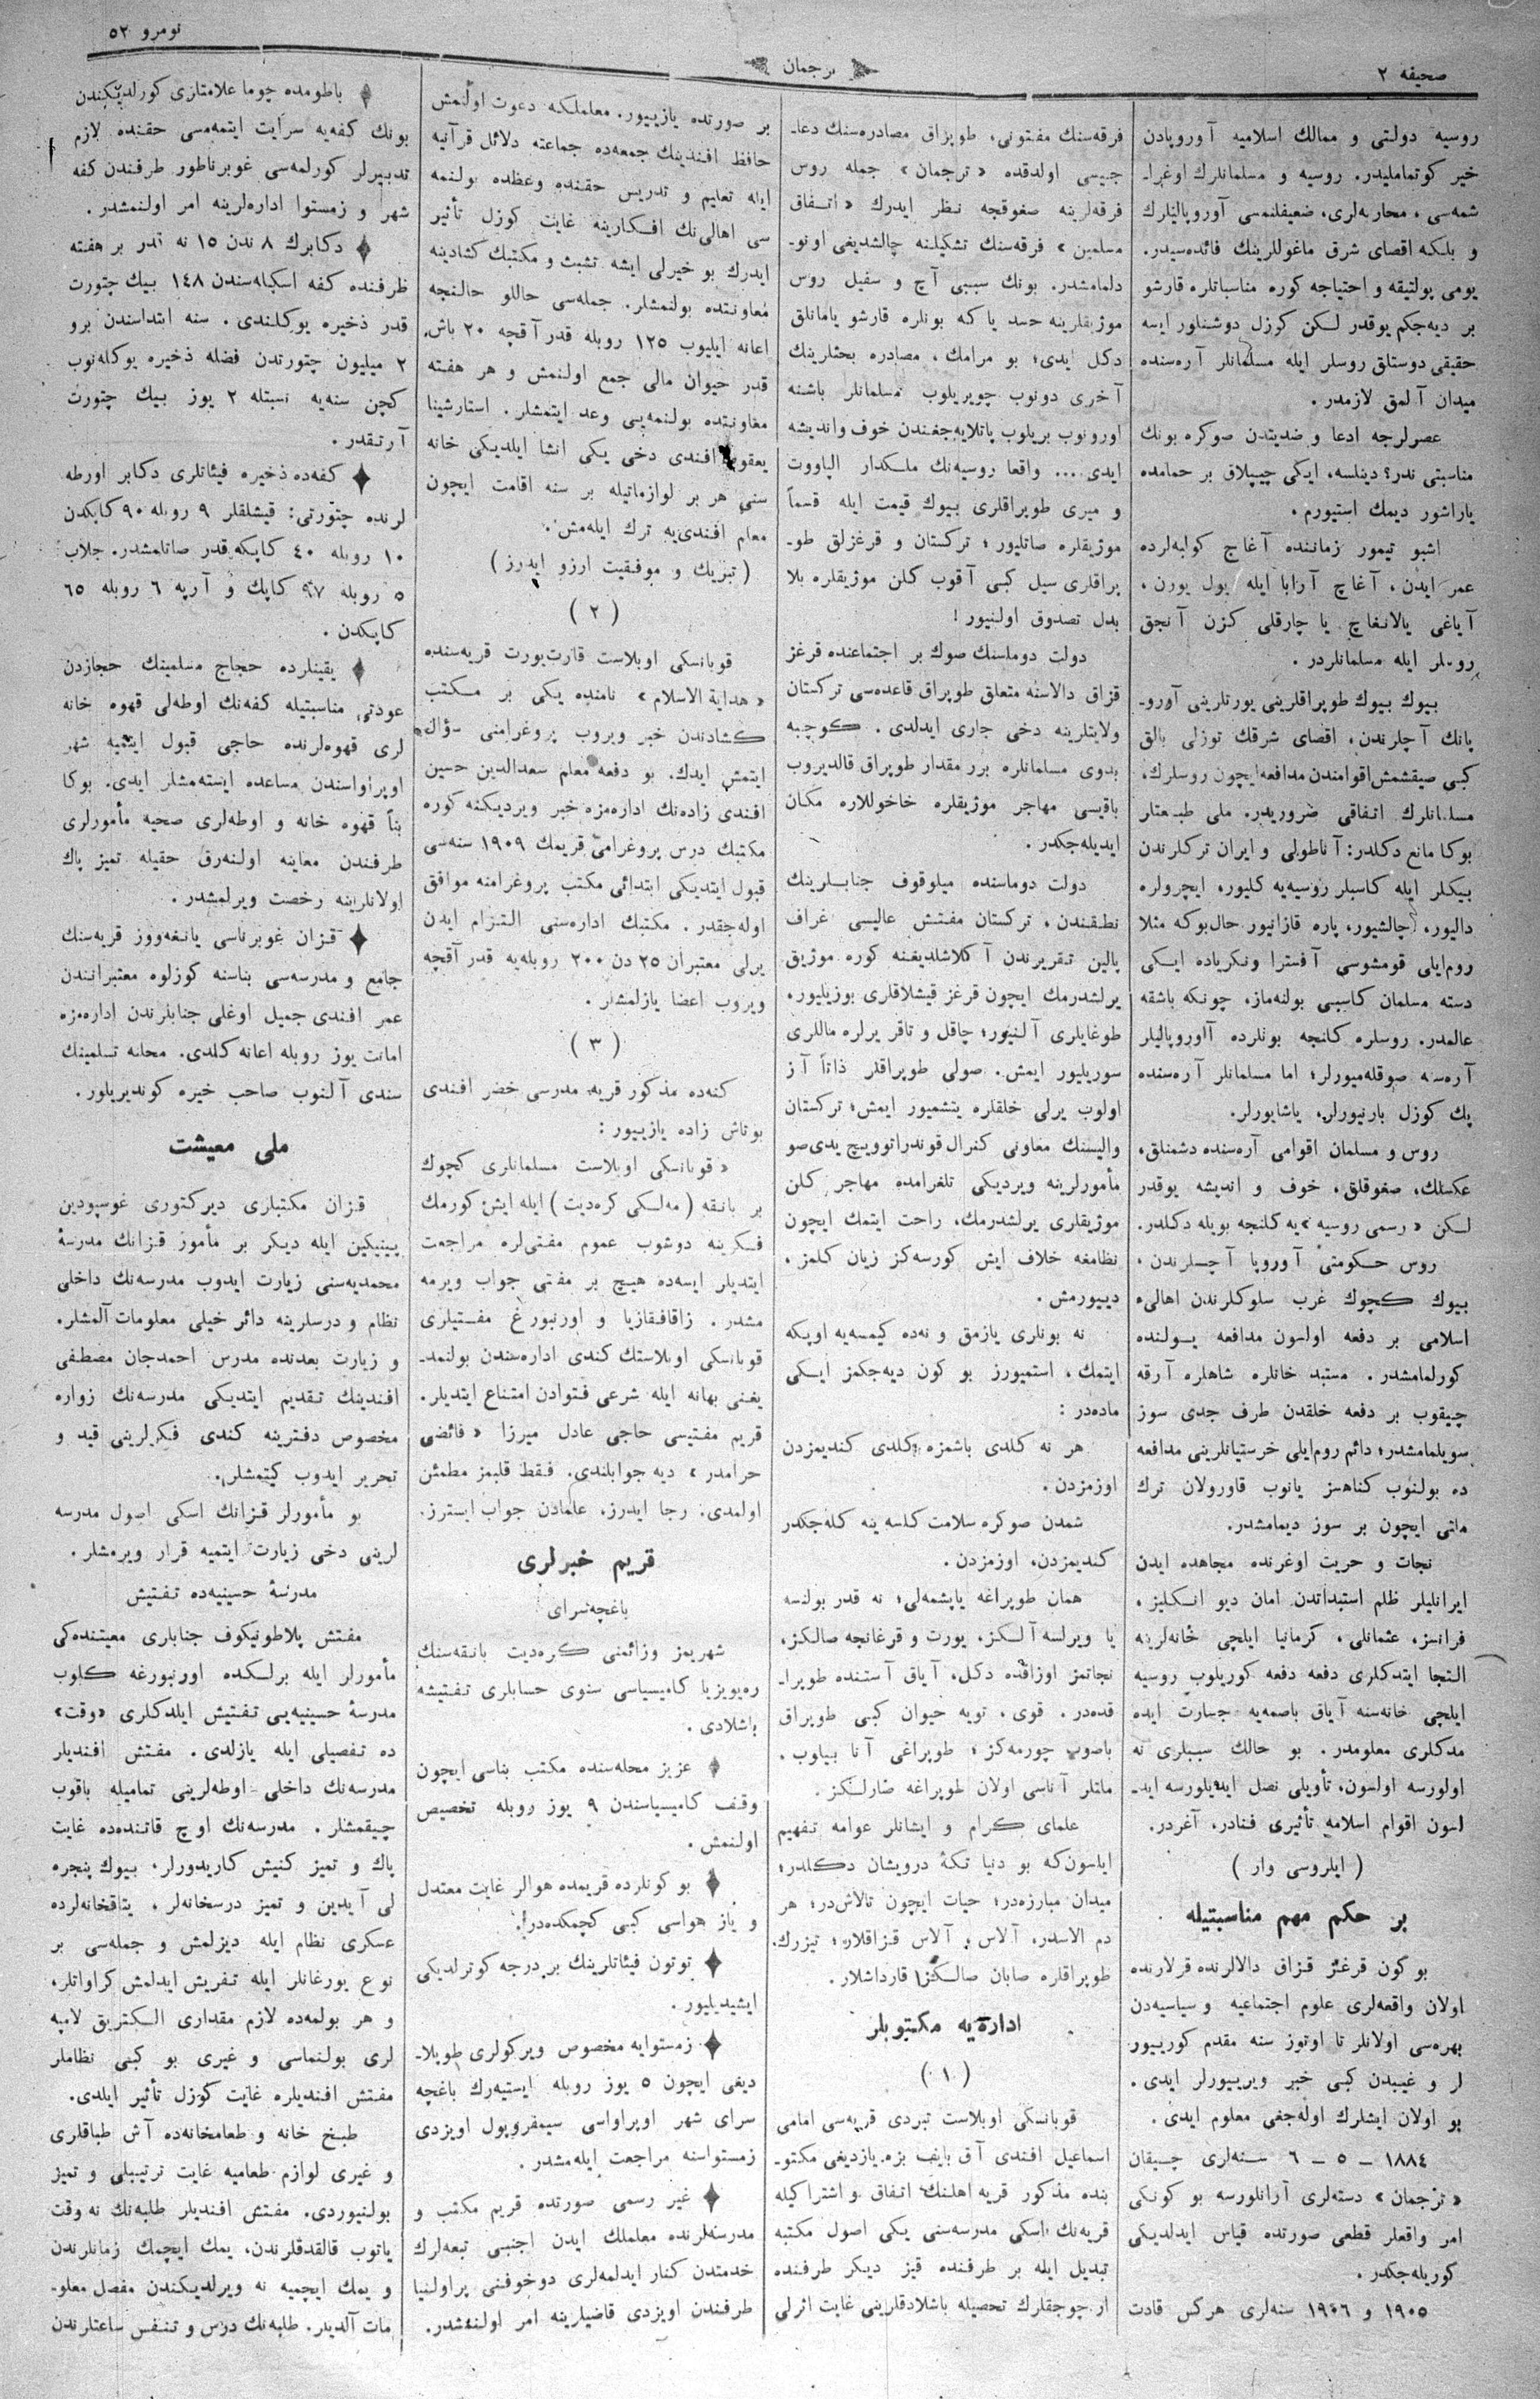 صحیفه ٢
ترجمان
نومرو ٥٢
روسیه دولتی و ممالك اسلامیه آوروپادن
خیر كوتماملیدر. روسیه و مسلمانلرك اوغرا-
شمه‌سی، محاربه‌لری، ضعیفلنمسی آوروپالیلرك
و بلكه اقصای شرق ماغوللرینك فائده‌سیدر.
یومی پولتیقه و احتیاجه كوره مناسباتلره قارشو
بر دیه‌جكم یوقدر لكن كوزل دوشنلور ایسه
حقیقی دوستلق روسلر ایله مسلمانلر آره‌سنده
میدان آلمق لازمدر.
عصرلرجه ادعا و ضدیتدن صوكره بونك
مناسبتی ندر؟ دینلسه، ایكی چیپلاق بر حمامده
یاراشور دیمك استیورم.
اشبو تیمور زماننده آغاج كولبه‌لرده
عمر ایدن، آغاج آرابا ایله یول یورن،
آیاغی یالانغاچ یا چارقلی كزن آنجق
روسلر ایله مسلمانلردر.
بیوك بیوك طوپراقلرینی یورتلرینی آورو-
پانك آچلرندن، اقصای شرقك توزلی بالق
كبی صیقشمش اقوامندن مدافعه ایچون روسلرك،
مسلمانلرك اتفاقی ضروریدر. ملی طبیعتلر
بوكا مانع دكلدر: آناطولی و ایران تركلرندن
بیكلر ایله كاسبلر روسیه‌یه كلیور، ایچرولره
دالیور، چالشیور، پاره قازانیور حال بوكه مثلا
روم‌ایلی قومشوسی آفسترا ونكریاده ایكی
دسته مسلمان كاسبی بولنه‌ماز، چونكه باشقه
عالمدر. روسلره كلنجه بونلرده آوروپالیلر
آره‌سنه صوقله‌میورلر؛ اما مسلمانلر آره‌سنده
پك كوزل بارنیورلر، یاشایورلر.
روس و مسلمان اقوامی آره‌سنده دشمنلق،
عكسلك، صغوقلق، خوف و اندیشه یوقدر
لكن «رسمی روسیه» یه كلنجه بویله دكلدر.
روس حكومتی آوروپا آچلرندن،
بیوك كچوك غرب سلوكلرندن اهالیء
اسلامی بر دفعه اولسون مدافعه یولنده
كورلمامشدر. مستبد خانلره شاهلره آرقه
چیقوب بر دفعه خلقدن طرف جدی سوز
سویلمامشدر؛ دائم روم‌ایلی خرستیانلرینی مدافعه
ده بولنوب كناهسز یانوب قاورولان ترك
ملتی ایچون بر سوز دیمامشدر.
نجات و حریت اوغرنده مجاهده ایدن
ایرانلیلر ظلم استبداتدن امان دیو انكلیز،
فرانسز، عثمانلی، كرمانیا ایلچی خانه‌لرینه
التجا ایتدكلری دفعه دفعه كوریلوب روسیه
ایلچی خانه‌سنه آیاق باصمه‌یه جسارت ایده
مدكلری معلومدر. بو حالك سببلری نه
اولورسه اولسون، تأویلی نصل ایدیلورسه اید-
لسون اقوام اسلامیه تأثیری فنادر، آغردر.
( ایلروسی وار )
بر حكم مهم مناسبتیله
بو كون قرغز قزاق دالالرنده قرلارنده
اولان واقعه‌لری علوم اجتماعیه و سیاسیه‌دن
بهره‌سی اولانلر تا اوتوز سنه مقدم كورییور
لر و غیبدن كبی خبر ویرییورلر ایدی.
بو اولان ایشلرك اوله‌جغی معلوم ایدی.
١٨٨٤ – ٥ – ٦ سنه‌لری چیقان
«ترجمان» دسته‌لری آرانلورسه بو كونكی
امر واقعلر قطعی صورتده قیاس ایدلدیكی
كوریله‌جكدر.
١٩٠٥ و ١٩٠٦ سنه‌لری هركس قادت
فرقه‌سنك مفتونی، طوپراق مصادره‌سنك دعا-
جیسی اولدقده «ترجمان» جمله روس
فرقه‌لرینه صغوقجه نظر ایدرك «اتفاق
مسلمین» فرقه‌سنك تشكیلنه چالشدیغی اونو-
دلمامشدر. بونك سببی آچ و سفیل روس
موژیقلرینه حسد یا كه بونلره قارشو یامانلق
دكل ایدی؛ بو مرامك، مصادره بحثلرینك
آخری دونوب چویریلوب مسلمانلر باشنه
اورونوب بریلوب پاتلایه‌جغندن خوف واندیشه
ایدی.... واقعا روسیه‌نك ملكدار الپاووت
و میری طوپراقلری بیوك قیمت ایله قسماً
موژیقلره صاتلیور؛ تركستان و قرغزلق طو-
پراقلری سیل كبی آقوب كلن موژیقلره بلا
بدل تصدوق اولنیور!
دولت دوماسنك صوك بر اجتماعنده قرغز
قزاق دالاسنه متعلق طوپراق قاعده‌سی تركستان
ولایتلرینه دخی جاری ایدلدی. كوچبه
بدوی مسلمانلره برر مقدار طوپراق قالدیروب
باقیسی مهاجر موژیقلره خاخوللاره مكان
ایدیله‌جكدر.
دولت دوماسنده میلوقوف جنابلرینك
نطقندن، تركستان مفتش عالیسی غراف
پالین تقریرندن آكلاشلدیغنه كوره موژیق
یرلشدرمك ایچون قرغز قیشلاقلری بوزیلیور،
طوغایلری آلنیور؛ چاقل و تاقر یرلره ماللری
سوریلیور ایمش. صولی طوپراقلر ذاتاً آز
اولوب یرلی خلقلره یتشمیور ایمش؛ تركستان
والیسنك معاونی كنرال قوندراتوویچ یدی‌صو
مأمورلرینه ویردیكی تلغرامده مهاجر كلن
موژیقلری یرلشدرمك، راحت ایتمك ایچون
نظامغه خلاف ایش كورسه‌كز زیان كلمز،
دییورمش.
نه بونلری یازمق و نه‌ده كیمسه‌یه اوپكه
ایتمك، استمیورز بو كون دیه‌جكمز ایكی
ماده‌در:
هر نه كلدی باشمزه كلدی كندیمزدن
اوزمزدن.
شمدن صوكره سلامت كلسه ینه كله‌جكدر
كندیمزدن، اوزمزدن.
همان طوپراغه یاپشمه‌لی؛ نه قدر بولنسه
یا ویرلسه آلكز، یورت و قرغانجه صالكز،
نجاتمز اوزاقده دكل، آیاق آستنده طوپرا-
قده‌در. قوی، تویه حیوان كبی طوپراق
باصوب چورمه‌كز؛ طوپراغی آنا بیلوب،
ملتلر آناسی اولان طوپراغه صارلكز.
علمای كرام و ایشانلر عوامه تفهیم
ایلسون‌كه بو دنیا تكهٔ درویشان دكلدر؛
میدان مبارزه‌در؛ حیات ایچون تالاش‌در؛ هر
دم الاسدر، آلاس، آلاس قزاقلار؛ تیزرك،
طوپراقلره صابان صالكز! قارداشلار.
اداره‌یه مكتوبلر
( ١ )
قوبانسكی اوبلاست تبردی قریه‌سی امامی
اسماعیل افندی آق بایف بزه یازدیغی مكتو-
بنده مذكور قریه اهلنك اتفاق و اشتراكیله
قریه‌نك اسكی مدرسه‌سنی یكی اصول مكتبه
تبدیل ایله بر طرفنده قیز دیكر طرفنده
ار چوجقلرك تحصیله باشلادقلرینی غایت اثرلی
بر صورتده یازییور. معلملكه دعوت اولنمش
حافظ افندینك جمعه‌ده جماعته دلائل قرآنیه
ایله تعلیم و تدریس حقنده وعظده بولنمه
سی اهالی‌نك افكارینه غایت كوزل تأثیر
ایدرك بو خیرلی ایشه تشبث و مكتبك كشادینه
معاونتده بولنمشلر. جمله‌سی حاللو حالنجه
اعانه ایلیوب ١٢٥ روبله قدر آقچه ٢٠ باش
قدر حیوان مالی جمع اولنمش و هر هفته
معاونتده بولنمه‌یی وعد ایتمشلر. استارشینا
یعقوب افندی دخی یكی انشا ایلدیكی خانه
سنی هر بر لوازماتیله بر سنه اقامت ایچون
معلم افندی‌یه ترك ایله‌مش.
( تبریك و موفقیت ارزو ایدرز )
( ٢ )
قوبانسكی اوبلاست قارت‌یورت قریه‌سنده
«هدایة الاسلام» نامنده یكی بر مكتب
كشادندن خبر ویروب پروغرامنی سؤال
ایتمش ایدك. بو دفعه معلم سعدالدین حسین
افندی زاده‌نك اداره‌مزه خبر ویردیكنه كوره
مكتبك درس پروغرامی قریمك ١٩٠٩ سنه‌سی
قبول ایتدیكی ابتدائی مكتب پروغرامنه موافق
اوله‌جقدر. مكتبك اداره‌سنی التزام ایدن
یرلی معتبران ٢٥ دن ٢٠٠ روبله‌یه قدر آقچه
ویروب اعضا یازلمشلر.
( ٣ )
كنه‌ده مذكور قریه مدرسی خضر افندی
بوتاش زاده یازییور:
«قوبانسكی اوبلاست مسلمانلری كچوك
بر بانقه (مه‌لكی كره‌دیت) ایله ایش كورمك
فكرینه دوشوب عموم مفتی‌لره مراجعت
ایتدیلر ایسه‌ده هیچ بر مفتی جواب ویرمه
مشدر. زاقافقازیا و اورنبورغ مفتیلری
قوبانسكی اوبلاستك كندی اداره‌سندن بولنمد-
یغنی بهانه ایله شرعی فتوادن امتناع ایتدیلر.
قریم مفتیسی حاجی عادل میرزا «فائضی
حرامدر» دیه جوابلندی. فقط قلبمز مطمئن
اولمدی. رجا ایدرز، علمادن جواب ایسترز.
قریم خبرلری
باغچه‌سرای
شهریمز وزائمنی كره‌دیت بانقه‌سنك
ره‌یویزیا كامیسیاسی سنوی حسابلری تفتیشه
باشلادی.
عزیز محله‌سنده مكتب بناسی ایچون
وقف كامیسیاسندن ٩ یوز روبله تخصیص
اولنمش.
بو كونلرده قریمده هوالر غایت معتدل
و یاز هواسی كبی كچمكده‌در.
توتون فیئاتلرینك بر درجه كوترلدیكی
ایشیدیلیور.
زمستوایه مخصوص ویركولری طوپلا-
دیغی ایچون ٥ یوز روبله ایستیه‌رك باغچه
سرای شهر اوپراواسی سیمفروپول اویزدی
زمستواسنه مراجعت ایله‌مشدر.
غیر رسمی صورتده قریم مكتب و
مدرسه‌لرنده معلملك ایدن اجنبی تبعه‌لرك
خدمتدن كنار ایدلمه‌لری دوخوفنی پراولنیا
طرفندن اویزدی قاضیلرینه امر اولنمشدر.
باطومده چوما علامتلری كورلدیكندن
بونك كفه‌یه سرایت ایتمه‌مسی حقنده لازم
تدبیرلر كورلمه‌سی غوبرناطور طرفندن كفه
شهر و زمستوا اداره‌لرینه امر اولنمشدر.
دكابرك ٨ ندن ١٥ نه قدر بر هفته
ظرفنده كفه اسكله‌سندن ١٤٨ بیك چتورت
قدر ذخیره یوكلندی. سنه ابتداسندن برو
٢ میلیون چتورتدن فضله ذخیره یوكله‌نوب
كچن سنه‌یه نسبتله ٢ یوز بیك چتورت
آرتقدر.
كفه‌ده ذخیره فیئاتلری دكابر اورطه
لرنده چتورتی: قیشلقلر ٩ روبله ٩٠ كاپكدن
١٠ روبله ٤٠ كاپكه قدر صاتلمشدر. جلاب
٥ روبله ٩٧ كاپك و آرپه ٦ روبله ٦٥
كاپكدن.
یقینلرده حجاج مسلمینك حجازدن
عودتی مناسبتیله كفه‌نك اوطه‌لی قهوه خانه
لری قهوه‌لرنده حاجی قبول ایتمیه شهر
اوپراواسندن مساعده ایسته‌مشلر ایدی. بوكا
بناً قهوه خانه و اوطه‌لری صحیه مأمورلری
طرفندن معاینه اولنه‌رق حقیله تمیز پاك
اولانلرینه رخصت ویرلمشدر.
قزان غوبرناسی یانغه‌ووز قریه‌سنك
جامع و مدرسه‌سی بناسنه كوزلوه معتبرانندن
عمر افندی جمیل اوغلی جنابلرندن اداره‌مزه
امانت یوز روبله اعانه كلدی. محلنه تسلمینك
سندی آلنوب صاحب خیره كوندیریلور.
ملی معیشت
قزان مكتبلری دیركتوری غوسپودین
پینیكین ایله دیكر بر مأمور قزانك مدرسهٔ
محمدیه‌سنی زیارت ایدوب مدرسه‌نك داخلی
نظام و درسلرینه دائر خیلی معلومات آلمشلر.
و زیارت بعدنده مدرس احمدجان مصطفی
افندینك تقدیم ایتدیكی مدرسه‌نك زواره
مخصوص دفترینه كندی فكرلرینی قید و
تحریر ایدوب كیتمشلر.
بو مأمورلر قزانك اسكی اصول مدرسه
لرینی دخی زیارت ایتمیه قرار ویرمشلر.
مدرسهٔ حسینیه‌ده تفتیش
مفتش پلاطونیكوف جنابلری معیتنده‌كی
مأمورلر ایله برلكده اورنبورغه كلوب
مدرسهٔ حسینیه‌یی تفتیش ایلدكلری «وقت»
ده تفصیلی ایله یازلدی. مفتش افندیلر
مدرسه‌نك داخلی اوطه‌لرینی تمامیله باقوب
چیقمشلر. مدرسه‌نك اوچ قاتنده‌ده غایت
پاك و تمیز كنیش كاریدورلر، بیوك پنجره
لی آیدین و تمیز درسخانه‌لر، یتاقخانه‌لرده
عسكری نظام ایله دیزلمش و جمله‌سی بر
نوع یورغانلر ایله تفریش ایدلمش كراواتلر،
و هر بولمه‌ده لازم مقداری الكتریق لامپه
لری بولنماسی و غیری بو كبی نظاملر
مفتش افندیلره غایت كوزل تأثیر ایلدی.
طبخ خانه و طعامخانه‌ده آش طباقلری
و غیری لوازم طعامیه غایت ترتیبلی و تمیز
بولنیوردی. مفتش افندیلر طلبه‌نك نه وقت
یاتوب قالقدقلرندن، یمك ایچمك زمانلرندن
و یمك ایچمیه نه ویرلدیكندن مفصل معلو-
مات آلدیلر. طلبه‌نك درس و تنفس ساعتلرندن